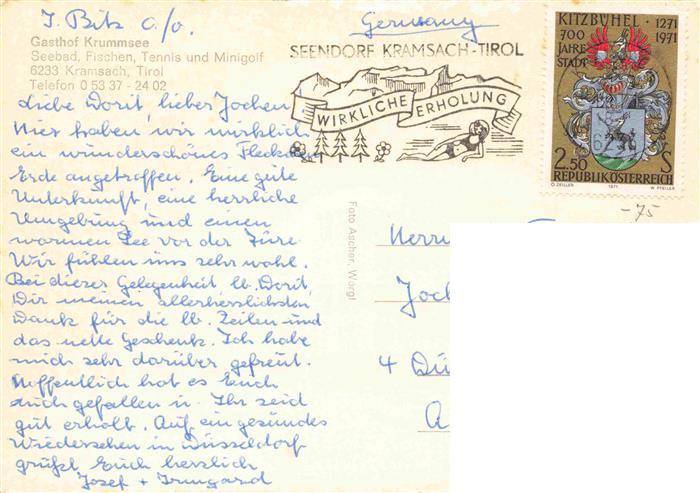 J. Bitz a./o.
Germany
Gasthof Krummsee
Seebad, Fischen, Tennis und Minigolf
6233 Kramsach, Tirol
Telefon 0 53 37 - 24 02
SEENDORF KRAMSACH-TIROL
WIRKLICHE ERHOLUNG
KITZBÜHEL · 1271
700 1971
JAHRE
STADT
2.50 S
REPUBLIK ÖSTERREICH
O. ZEILLER 1971 W. PFEILER
-75
Liebe Dorit, lieber Jochen,
Hier haben wir wirklich
ein wunderschönes Fleckchen
Erde angetroffen. Eine gute
Unterkunft, eine herrliche
Umgebung und einen
warmen See vor der Türe.
Wir fühlen uns sehr wohl.
Bei dieser Gelegenheit, lb. Dorit,
Dir meinen allerherzlichsten
Dank für die lb. Zeilen und
das nette Geschenk. Ich habe
mich sehr darüber gefreut.
Hoffentlich hat es Euch
auch gefallen u. Ihr seid
gut erholt. Auf ein gesundes
Wiedersehen in Düsseldorf
grüßt Euch herzlich
Josef + Irmgard
Foto Ascher, Wörgl
Herrn
Joch
4 Dü
A